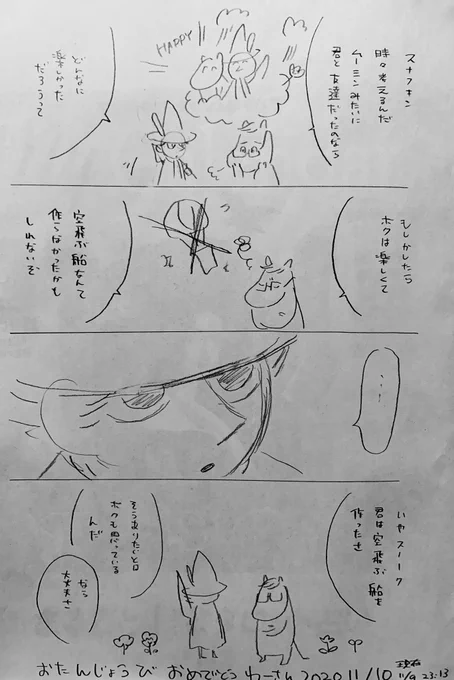 スナフキン
時々考えるんだ
ムーミンみたいに
君と友達だったのなら
HAPPY
どんなに
楽しかった
だろうって
もしかしたら
ボクは楽しくて
空飛ぶ船なんて
作らなかったかも
しれないぞ
・・・
いやスノーク
君は空飛ぶ船を
作ったさ
そうありたくとも
ボクも思っている
んだ
なら
大丈夫さ
おたんじょうび おめでとう わーさん 2020 11/10
11/9 23:13